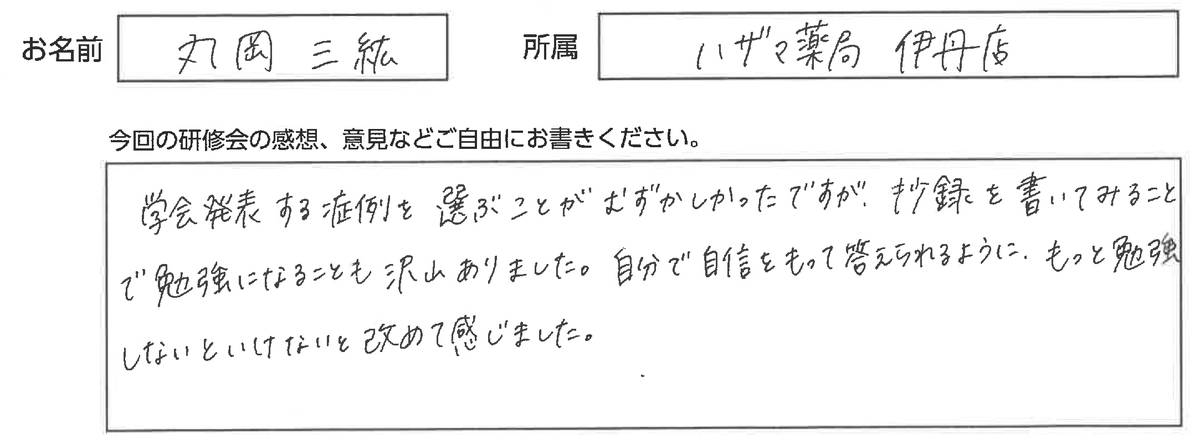 お名前 丸岡 三紘 所属 ハザマ薬局 伊丹店
今回の研修会の感想、意見などご自由にお書きください。
学会発表する症例を選ぶことがむずかしかったですが、抄録を書いてみること
で勉強になることも沢山ありました。自分で自信をもって答えられるように、もっと勉強
しないといけないと改めて感じました。